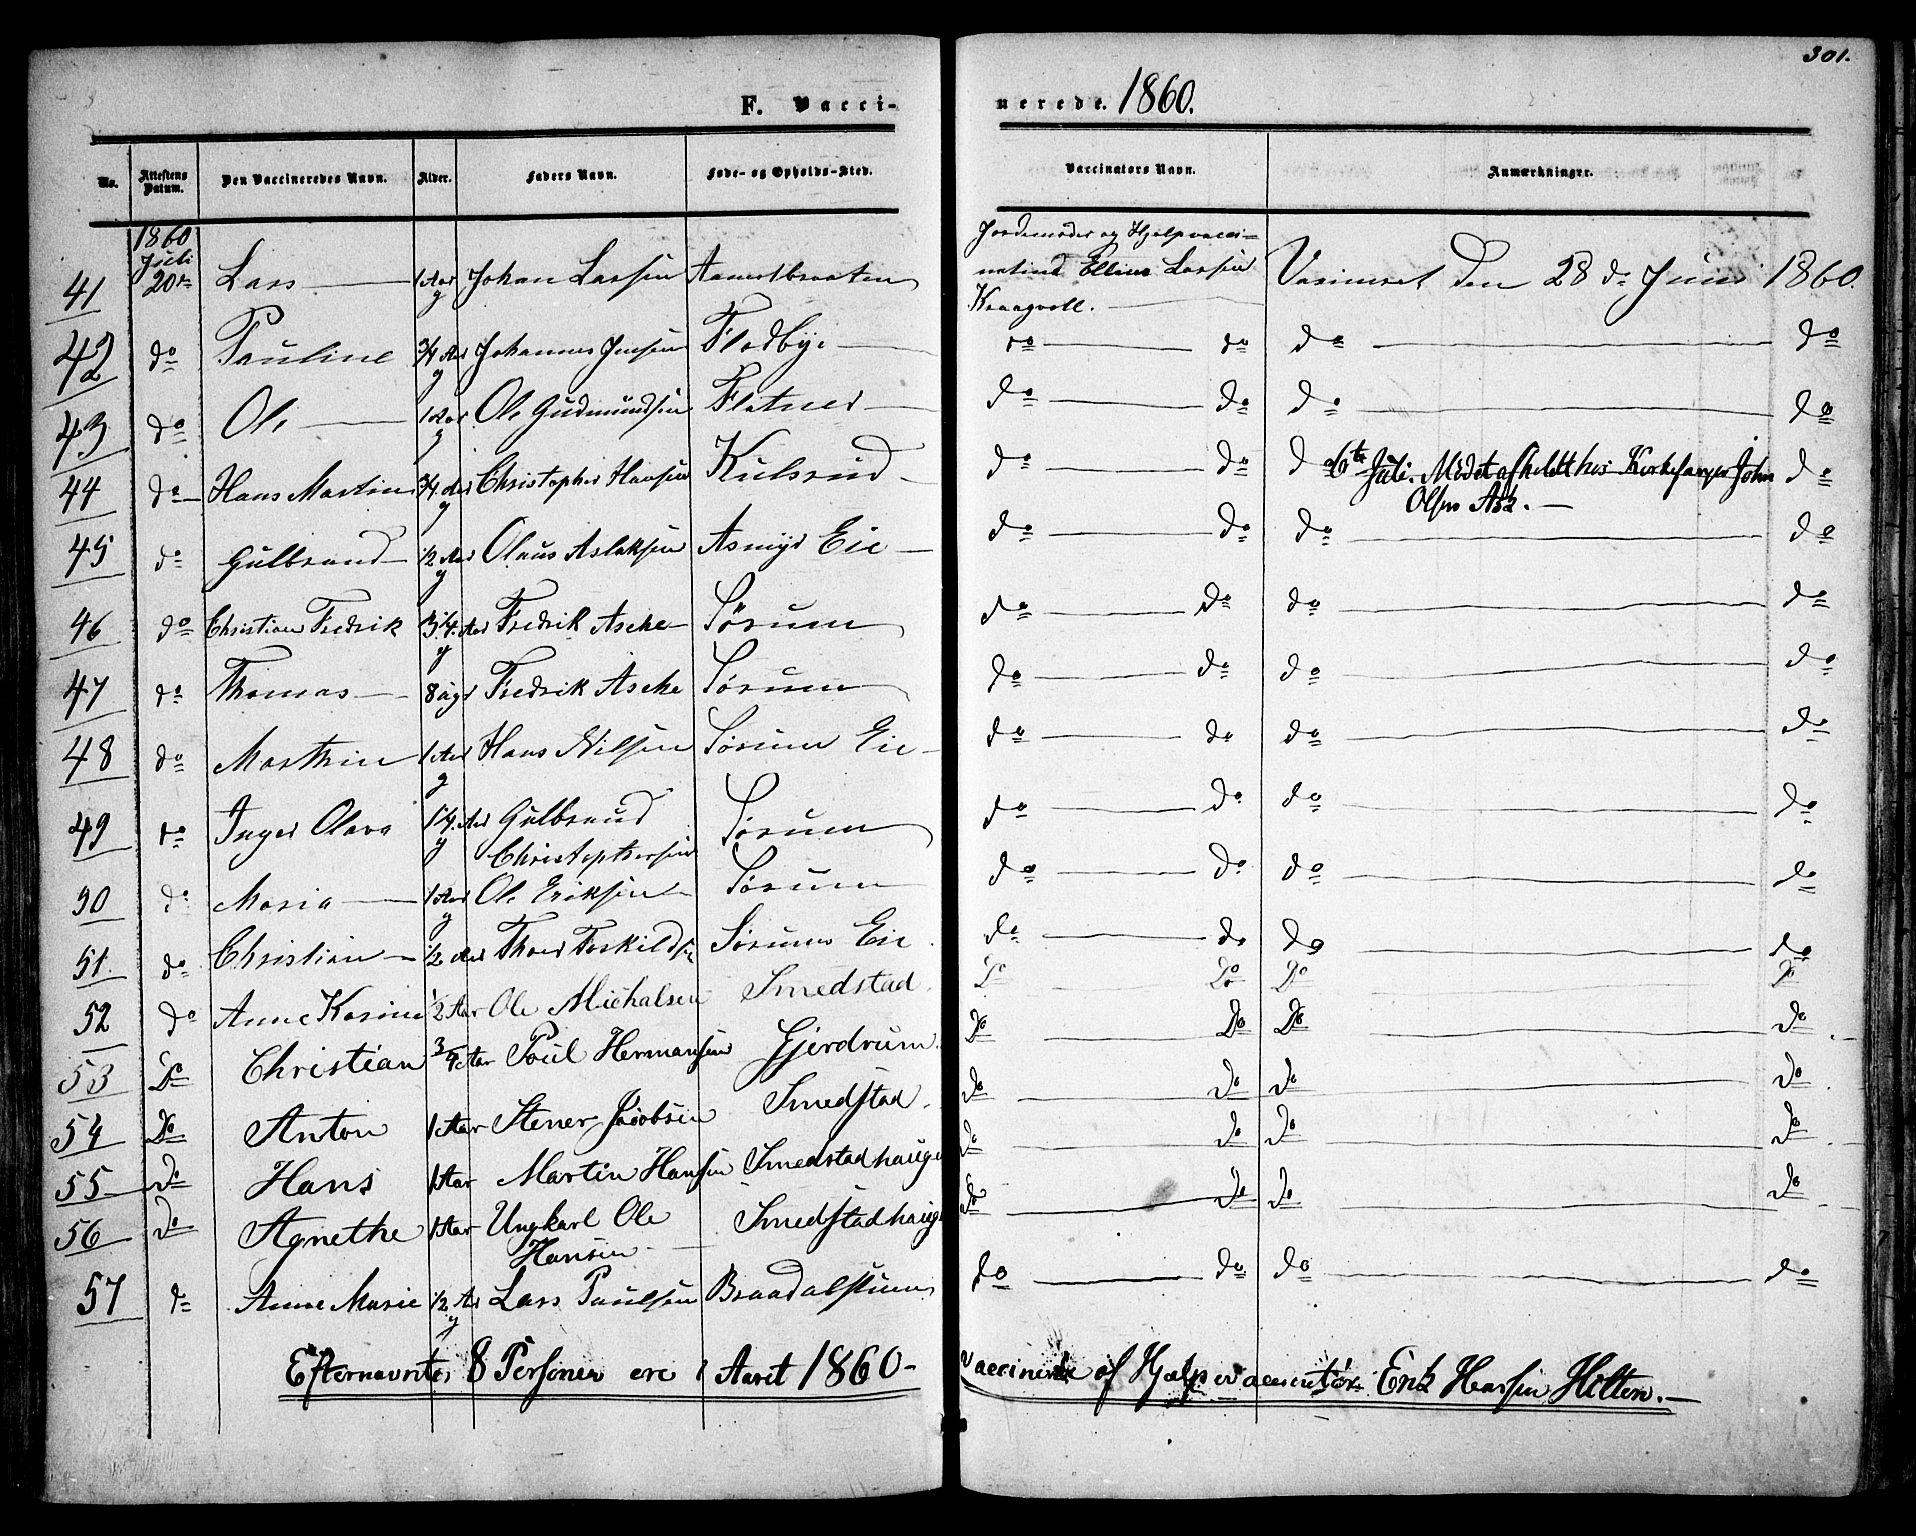 301.
F. Vaccinerede. 1860.
No. Attestens Datum. Den Vaccineredes Navn. Alder. Faders Navn. Føde- og Opholds-Sted. Vaccinators Navn. Anmærkninger.
1860
Juli
Jordemoder og Hjelpvacci-
41 20de Lars 1 Aar g Johan Larsen natinde Larsen 28 de Juni 1860.
Kraagvoll.
42 do Pauline 3/4 Aar g Johannes Jensen Flodbye do do do do
43 do Ole 1 Aar g Ole Gudmundsen Flatner do do do do
44 do Hans Martin 3/4 Aar g Christopher Hansen Kulsrud do do do 6te Juli. Mödet afholdt hos Kirkesanger John do
Olsen Ask.
45 do Gulbrand 1/2 Aar g Olaus Aslaksen Asmyr Eie do do do do
46 do Christian Fredrik 3 1/4 Aar g Fredrik Asche Sørum do do do do
47 do Thomas 8 Ugr Fredrik Asche Sørum do do do do
48 do Marthin 1 Aar g Hans Nilsen Sørum Eie do do do do
49 do Inger Olava 1 1/4 Aar g Gulbrand Sørum do do do do
Christophersen
50 do Maria 1 Aar g Ole Eriksen Sørum do do do do
51 do Christian 1/2 Aar Thoer Torkilds Sørums Eie do do do do
52 do Anne Karine 1/2 Aar Ole Michalsen Smedstad. Do Do Do Do
53 Do Christian 3/4 Aar Poul Hermansen Gjerdrum. Do Do Do Do
54 Do Anton 1 Aar Stener Jacobsen Smedstad. Do Do Do Do
55 Do Hans 1 Aar Martin Hansen Smedstadhaugen Do Do Do Do
56 Do Agnethe 1 Aar Ungkarl Ole Smedstadhaugen Do Do Do Do
Hansen
57 do Anne Marie 1/2 Aar g Lars Paulsen Braadalstuen do do do do
Efternævnte 8 Personer ere i Aaret 1860 vaccinerede af Hjælpevaccinatør Erik Hansen Holter.